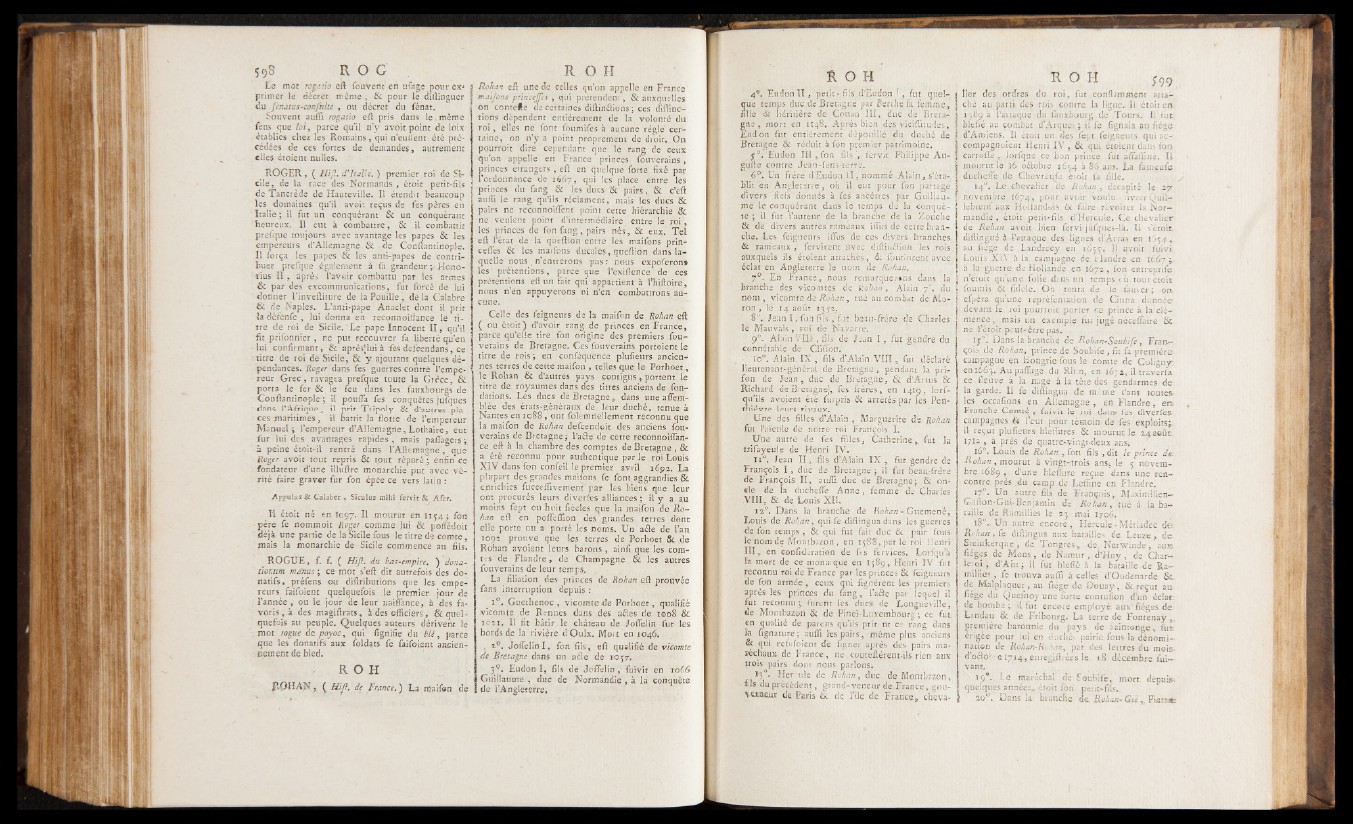 598 R O G R O H
Le mot rogatio est souvent en usage pour ex-
primer le décret même, & pour le distinguer
du senatus-consulte, ou décret du sénat.
Souvent aussi rogatio est pris dans le même
sens que loi, parce qu'il n'y avoit point de loix
établies chez les Romains, qui n'eussent été pré-
cédées de ces sortes de demandes, autrement
elles étoient nulles.
ROGER, ( Hist. d'Italie. ) premier roi de Si-
cile, de la race des Normands, étoit petit-fils
de Tancrède de Hauteville. Il étendit beaucoup
les domaines qu'il avoit reçus de ses pères en
Italie; il fut un conquérant & un conquérant
heureux. Il eut à combattre, & il combattit
presque toujours avec avantage les papes & les
empereurs d'Allemagne & de Constantinople.
Il força les papes & les anti-papes de contri-
buer presque également à sa grandeur; Hono-
rius II, après l'avoir combattu par les armes
& par des excommunications, fut forcé de lui
donner l'investiture de la Pouille, de la Calabre
& de Naples. L'anti-pape Anaclet dont il prit
la défense, lui donna en reconnoissance le ti-
tre de roi de Sicile. Le pape Innocent II, qu'il
fit prisonnier, ne put recouvrer sa liberté qu'en
lui confirmant, & après lui à ses descendans, ce
titre de roi de Sicile, & y ajoutant quelques dé-
pendances. Roger dans ses guerres contre l'empe-
reur Grec, ravagea presque toute la Grèce, &
porta le fer & le feu dans les fauxbourgs de
Constantinople; il poussa ses conquêtes jusques
dans l'Afrique, il prit Tripoly & d'autres pla-
ces maritimes, il battit la flotte de l'empereur
Manuel; l'empereur d'Allemagne, Lothaire, eut
sur lui des avantages rapides, mais passagers;
à peine étoit-il rentré dans l'Allemagne, que
Roger avoit tout repris & tout réparé; enfin ce
fondateur d'une illustre monarchie put avec vé-
rité faire graver sur son épée ce vers latin:
Appulus & Calaber, Siculus mihi servit & Afer.
Il étoit né en 1097. Il mourut en 1154; son
père se nommoit Roger comme lui & possédoit
déjà une partie de la Sicile sous le titre de comte,
mais la monarchie de Sicile commence au fils.
ROGUE, s. f. ( Hist. du bas-empire. ) dona-
tionum manus; ce mot s'est dit autrefois des do-
natifs, présens ou distributions que les empe-
reurs faisoient quelquefois le premier jour de
l'année, ou le jour de leur naissance, à des fa-
voris, à des magistrats, à des officiers, & quel-
quefois au peuple. Quelques auteurs dérivent le
mot rogue de payac, qui signifie du blé, parce
que les donatifs aux soldats se faisoient ancien-
nement de bled.
R O H
ROHAN, ( Hist. de France. ) La maison de
Rohan est une de celles qu'on appelle en France
maisons princesses, qui prétendent, & auxquelles
on conteste de certaines distinctions; ces distinc-
tions dépendent entiérement de la volonté du
roi, elles ne sont soumises à aucune règle cer-
taine, on n'y a point proprement de droit. On
pourroit dire cependant que le rang de ceux
qu'on appelle en France princes souverains,
princes étrangers, est en quelque sorte fixé par
l'ordonnance de 1667, qui les place entre les
princes du sang & les ducs & pairs, & c'est
aussi le rang qu'ils réclament, mais les ducs &
pairs ne reconnoissent point cette hiérarchie &
ne veulent point d'intermédiaire entre le roi,
les princes de son sang, pairs nés, & eux. Tel
est l'état de la question entre les maisons prin-
cesses & les maisons ducales, question dans la-
quelle nous n'entrerons pas: nous exposerons
les prétentions, parce que l'existence de ces
prétentions est un fait qui appartient à l'histoire,
nous n'en appuyerons ni n'en combattrons au-
cune.
Celle des seigneurs de la maison de Rohan est
( ou étoit ) d'avoir rang de princes en France,
parce qu'elle tire son origine des premiers sou-
verains de Bretagne. Ces souverains portoient le
titre de rois; en conséquence plusieurs ancien-
nes terres de cette maison, telles que le Porhoet,
le Rohan & d'autres pays contigus, portent le
titre de royaumes dans des titres anciens de fon-
dations. Les ducs de Bretagne, dans une assem-
blée des états-généraux de leur duché, tenue à
Nantes en 1088, ont solemnellement reconnu que
la maison de Rohan descendoit des anciens sou-
verains de Bretagne; l'acte de cette reconnoissan-
ce est à la chambre des comptes de Bretagne, &
a été reconnu pour authentique par le roi Louis
XIV dans son conseil le premier avril 1692. La
plupart des grandes maisons se sont aggrandies &
enrichies successivement par les biens que leur
ont procurés leurs diverses alliances; il y a au
moins sept ou huit siècles que la maison de Ro-
han est en possession des grandes terres dont
elle porte ou a porté les noms. Un acte de l'an
1092 prouve que les terres de Porhoet & de
Rohan avoient leurs barons, ainsi que les com-
tes de Flandre, de Champagne & les autres
souverains de leur temps.
La filiation des princes de Rohan est prouvée
sans interruption depuis:
1°. Guethenoc, vicomte de Porhoet, qualifié
vicomte de Rennes dans des actes de 1008 &
1021. Il fit bâtir le château de Josselin sur les
bords de la rivière d'Oulx. Mort en 1046.
2°. Josselin I, son fils, est qualifié de vicomte
de Bretagne dans un acte de 1057.
3°. Eudon I, fils de Josselin, suivit en 1066
Guillaume, duc de Normandie, à la conquête
de l'Angleterre.
R O H R O H 599
4°. Eudon II, petit-fils d'Eudon I, fut quel-
que temps duc de Bretagne par Berthe sa femme,
fille & héritière de Conan III, duc de Breta-
gne, mort en 1148. Après bien des vicissitudes,
Eudon fut entiérement dépouillé du duché de
Bretagne & réduit à son premier patrimoine.
5°. Eudon III, son fils, servit Philippe Au-
guste contre Jean-sans-terre.
6°. Un frère d'Eudon II, nommé Alain, s'éta-
blit en Angleterre, où il eut pour son partage
divers fiefs donnés à ses ancêtres par Guillau-
me le conquérant dans le temps de la conquê-
te; il fut l'auteur de la branche de la Zouche
& de divers autres rameaux issus de cette bran-
che. Les seigneurs issus de ces divers branches
& rameaux, servirent avec distinction les rois
auxquels ils étoient attachés, & soutinrent avec
éclat en Angleterre le nom de Rohan.
7°. En France, nous remarquerons dans la
branche des vicomtes de Rohan, Alain 7e, du
nom, vicomte de Rohan, tué au combat de Mo-
ron, le 14 août 1352.
8°. Jean I, son fils, fut beau-frère de Charles
le Mauvais, roi de Navarre.
9°. Alain VIII, fils de Jean I, fut gendre du
connétable de Clisson.
10°. Alain IX, fils d'Alain VIII, fut déclaré
lieutenant-général de Bretagne, pendant la pri-
son de Jean, duc de Bretagne, & d'Artus &
Richard de Bretagne, ses frères, en 1419, lors-
qu'ils avoient été surpris & arrêtés par les Pen-
thièvre leurs rivaux.
Une des filles d'Alain, Marguerite de Rohan
fut l'aïeule de notre roi François I.
Une autre de ses filles, Catherine, fut la
trisayeule de Henri IV.
11°. Jean II, fils d'Alain IX, fut gendre de
François I, duc de Bretagne; il fut beau-frère
de François II, aussi duc de Bretagne; & on-
cle de la duchesse Anne, femme de Charles
VIII, & de Louis XII.
12°. Dans la branche de Rohan-Guemené,
Louis de Rohan, qui se distingua dans les guerres
de son temps, & qui fut fait duc & pair sous
le nom de Montbazon, en 1588, par le roi Henri
III, en considération de ses services. Lorsqu'à
la mort de ce monarque en 1589, Henri IV fut
reconnu roi de France par les princes & seigneurs
de son armée, ceux qui signèrent les premiers
après les princes du sang, l'acte par lequel il
fut reconnu; furent les ducs de Longueville,
de Montbazon & de Pinei-Luxembourg; ce fut
en qualité de parens qu'ils prirent ce rang dans
la signature; aussi les pairs, même plus anciens
& qui refusoient de signer après des pairs ma-
réchaux de France, ne contestèrent-ils rien aux
trois pairs dont nous parlons.
13°. Hercule de Rohan, duc de Montbazon,
fils du précédent, grand-veneur de France, gou-
verneur de Paris & de l'île de France, cheva-
lier des ordres du roi, fut constamment atta-
ché au parti des rois contre la ligue. Il étoit en
1589 à l'attaque du fauxbourg de Tours. Il fut
blessé au combat d'Arques; il se signala au siége
d'Amiens. Il étoit un des sept seigneurs qui ac-
compagnoient Henri IV, & qui étoient dans son
carrosse, lorsque ce bon prince fut assassiné. Il
mourut le 16 octobre 1654 à 86 ans. La fameuse
duchesse de Chevreuse étoit sa fille.
14°. Le chevalier de Rohan, décapité le 27
novembre 1674, pour avoir voulu livrer Quil-
lebeuf aux Hollandais & faire révolter la Nor-
mandie, étoit petit-fils d'Hercule. Ce chevalier
de Rohan avoit bien servi jusques-là. Il s'étoit
distingué à l'attaque des lignes d'Arras en 1654,
au siége de Landrecy en 1655. Il avoit suivi
Louis XIV à la campagne de Flandre en 1667;
à la guerre de Hollande en 1672, son entreprise
n'étoit qu'une folie dans un temps où tout étoit
soumis & fidèle. On tenta de le sauver; on
espéra qu'une représentation de Cinna donnée
devant le roi pourroit porter ce prince à la clé-
mence, mais un exemple fut jugé nécessaire &
ne l'étoit peut-être pas.
15°. Dans la branche de Rohan-Soubise, Fran-
çois de Rohan, prince de Soubise, fit sa première
campagne en Hongrie sous le comte de Coligny
en 1664. Au passage du Rhin, en 1672, il traversa
ce fleuve à la nage à la tête des gendarmes de
la garde. Il se distingua de même dans toutes
les occasions en Allemagne, en Flandre, en
Franche Comté, suivit le roi dans ses diverses
campagnes & l'eut pour témoin de ses exploits;
il reçut plusieurs blessures & mourut le 24 août
1712, à près de quatre-vingt-deux ans.
16°. Louis de Rohan, son fils, dit le prince de
Rohan, mourut à vingt-trois ans, le 5 novem-
bre 1689, d'une blessure reçue dans une ren-
contre près du camp de Lessine en Flandre.
17°. Un autre fils de François, Maximilien-
Gaston-Gui-Benjamin de Rohan, tué à la ba-
taille de Ramillies le 23 mai 1706.
18°. Un autre encore, Hercule-Mériadec de
Rohan, se distingua aux batailles de Leuze, de
Steinkerque, de Tongres, de Nerwinde, aux
siéges de Mons, de Namur, d'Huy, de Char-
leroi, d'Ath; il fut blessé à la bataille de Ra-
millies, se trouva aussi à celles d'Oudenarde &
de Malplaquet, au siége de Douay, & reçut au
siége du Quesnoy une forte contusion d'un éclat
de bombe; il fut encore employé aux siéges de
Landau & de Fribourg. La terre de Fontenay,
première baronnie du pays de Saintonge, fut
érigée pour lui en duché-pairie sous la dénomi-
nation de Rohan-Rohan, par des lettres du mois
d'octobre 1714, enregistrées le 18 décembre sui-
vant.
19°. Le maréchal de Soubise, mort depuis
quelques années, étoit son petit-fils.
20°. Dans la branche de Rohan-Gié, Pierre